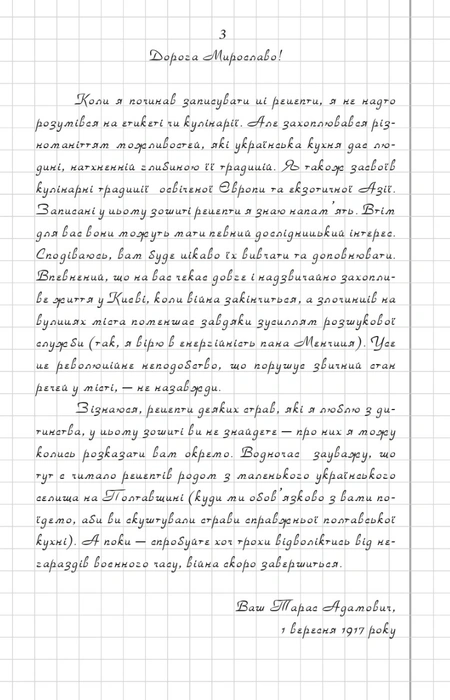 3
Дорога Мирославо!
Коли я починав записувати ці рецепти, я не надто
розумівся на етикеті чи кулінарії. Але захоплювався різ-
номаніттям можливостей, які українська кухня дає лю-
дині, натхненній глибиною її традицій. Я також засвоїв
кулінарні традиції освіченої Європи та екзотичної Азії.
Записані у цьому зошиті рецепти я знаю напам'ять. Втім
для вас вони можуть мати певний дослідницький інтерес.
Сподіваюсь, вам буде цікаво їх вивчати та доповнювати.
Впевнений, що на вас чекає довге і надзвичайно захопли-
ве життя у Києві, коли війна закінчиться, а злочинців на
вулицях міста поменшає завдяки зусиллям розшукової
служби (так, я вірю в енергійність пана Менчиця). Усе
це революційне неподобство, що порушує звичний стан
речей у місті, — не назавжди.
Зізнаюся, рецепти деяких страв, які я люблю з ди-
тинства, у цьому зошиті ви не знайдете — про них я можу
колись розказати вам окремо. Водночас зауважу, що
тут є чимало рецептів родом з маленького українського
селища на Полтавщині (куди ми обов'язково з вами по-
їдемо, аби ви скуштували страви справжньої полтавської
кухні). А поки — спробуйте хоч трохи відволіктись від не-
гараздів воєнного часу, війна скоро завершиться.
Ваш Тарас Адамович,
1 вересня 1917 року